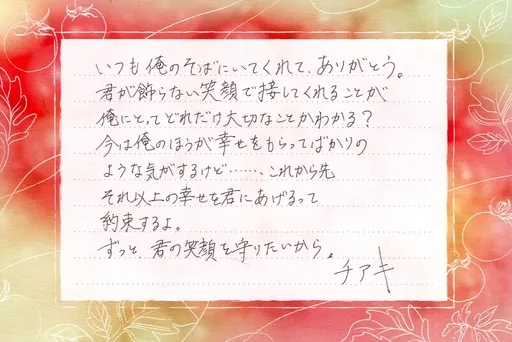 いつも俺のそばにいてくれて、ありがとう。
君が飾らない笑顔で接してくれることが
俺にとってどれだけ大切なことかわかる？
今は俺のほうが幸せをもらってばかりの
ような気がするけど……、これから先
それ以上の幸せを君にあげるって
約束するよ。
ずっと、君の笑顔を守りたいから。
チアキ